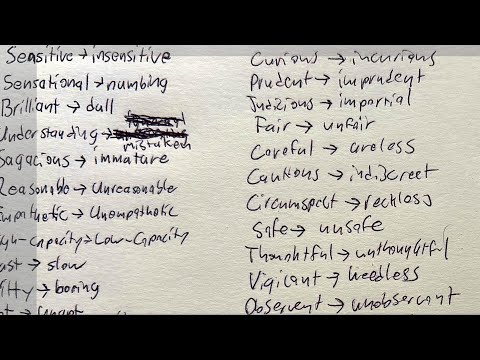 Sensitive → insensitive
Sensational → numbing
Brilliant → dull
Understanding → mistaken
Sagacious → immature
Reasonable → Unreasonable
Empathetic → Unempathetic
High-Capacity → Low-Capacity
Fast → slow
Witty → boring
Curious → incurious
Prudent → imprudent
Judizious → imparial
Fair → unfair
Careful → careless
Cautions → indiscreet
Circumspect → reckloss
Safe → unsafe
Thoughtful → unthoughtful
Vigilant → heedless
Observent → unobservant